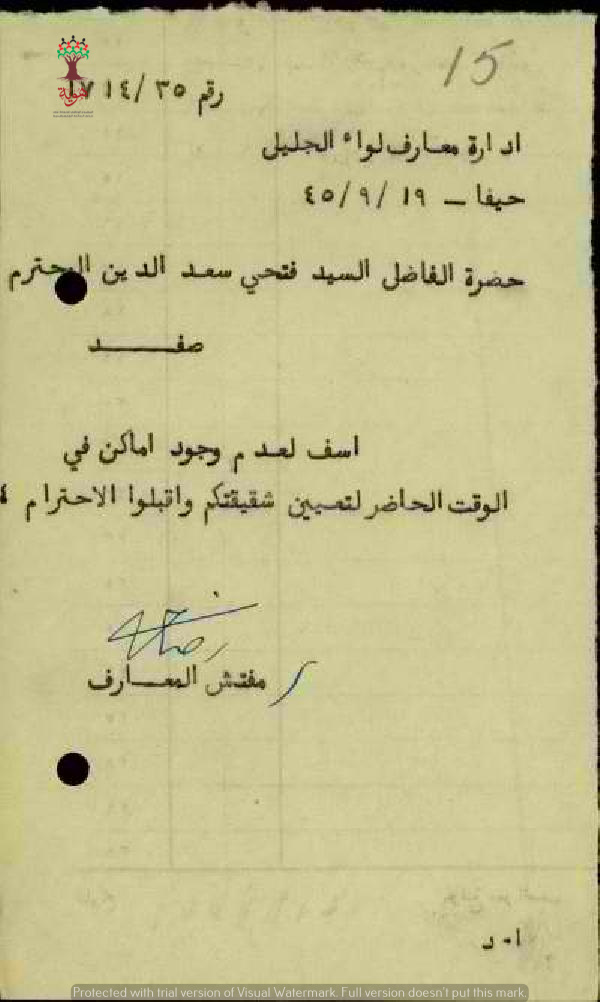 15
رقم ٣٥/ ١٤ ١٧
هوية
ادارة معارف لواء الجليل
حيفا – ١٩ /٩ /٤٥
حضرة الفاضل السيد فتحي سعد الدين المحترم
صفـــــد
اسف لعدم وجود اماكن في
الوقت الحاضر لتعيين شقيقتكم واقبلوا الاحترام
مفتش المعـــارف
ا٠ د
Protected with trial version of Visual Watermark. Full version doesn't put this mark.